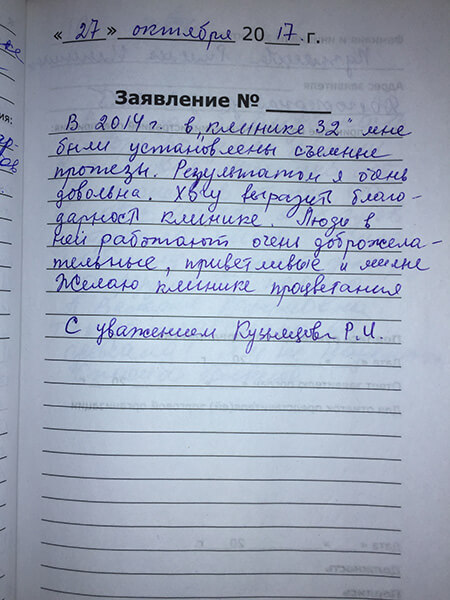 « 27 » октября 20 17 . г.
Заявление №
В 2014 г. в „клинике 32" мне
были установлены съемные
протезы. Результатом я очень
довольна. Хочу выразить благо-
дарность клинике. Люди в
ней работают очень доброжела-
тельные, приветливые и милые
Желаю клинике процветания
С уважением Кузьмцова Р.И.